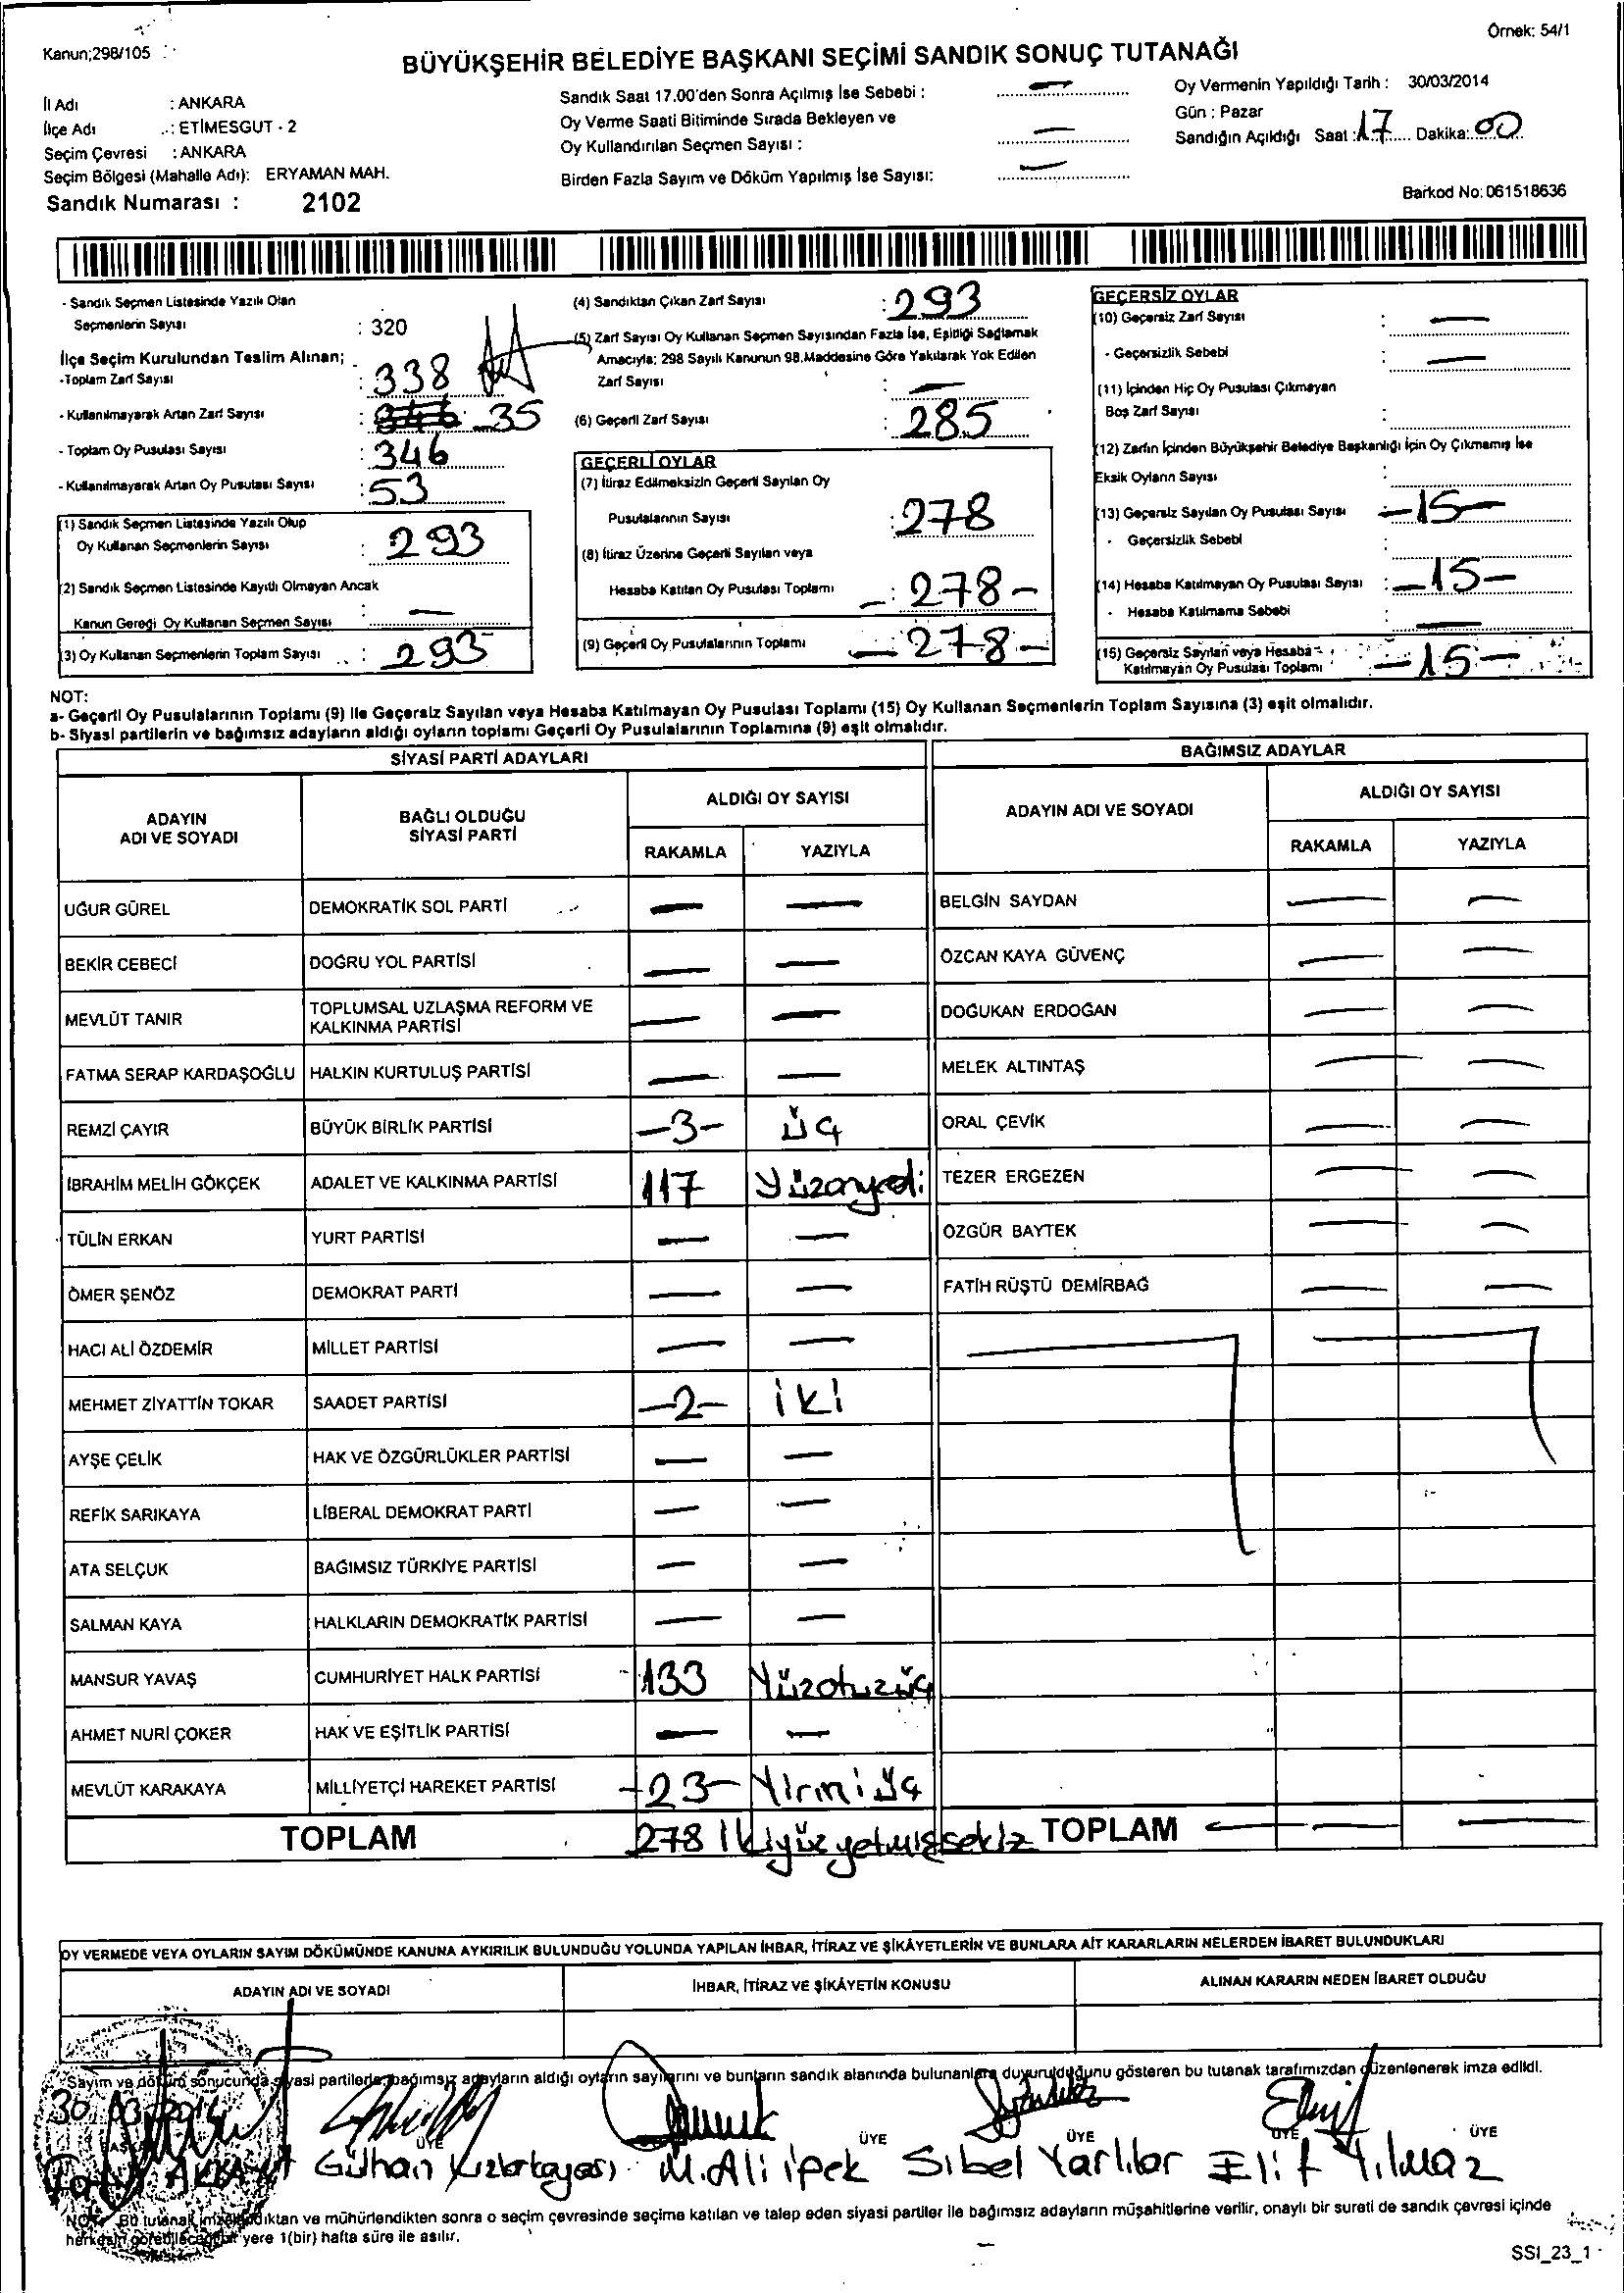 Örnek: 54/1
Kanun;298/105
BÜYÜKŞEHİR BELEDİYE BAŞKANI SEÇİMİ SANDIK SONUÇ TUTANAĞI
İl Adı : ANKARA
İlçe Adı : ETİMESGUT - 2
Seçim Çevresi : ANKARA
Seçim Bölgesi (Mahalle Adı): ERYAMAN MAH.
Sandık Numarası : 2102
Sandık Saat 17.00'den Sonra Açılmış İse Sebebi : —
Oy Verme Saati Bitiminde Sırada Bekleyen ve
Oy Kullandırılan Seçmen Sayısı : —
Birden Fazla Sayım ve Döküm Yapılmış İse Sayısı: —
Oy Vermenin Yapıldığı Tarih : 30/03/2014
Gün : Pazar
Sandığın Açıldığı Saat : 17 Dakika: 00
Barkod No: 061518636
- Sandık Seçmen Listesinde Yazılı Olan
Seçmenlerin Sayısı : 320
İlçe Seçim Kurulundan Teslim Alınan;
-Toplam Zarf Sayısı : 338
- Kullanılmayarak Artan Zarf Sayısı : 35
- Toplam Oy Pusulası Sayısı : 346
- Kullanılmayarak Artan Oy Pusulası Sayısı : 53
(1) Sandık Seçmen Listesinde Yazılı Olup
Oy Kullanan Seçmenlerin Sayısı : 293
(2) Sandık Seçmen Listesinde Kayıtlı Olmayan Ancak
Kanun Gereği Oy Kullanan Seçmen Sayısı : —
(3) Oy Kullanan Seçmenlerin Toplam Sayısı : 293
(4) Sandıktan Çıkan Zarf Sayısı : 293
(5) Zarf Sayısı Oy Kullanan Seçmen Sayısından Fazla İse, Eşitliği Sağlamak
Amacıyla; 298 Sayılı Kanunun 98.Maddesine Göre Yakılarak Yok Edilen
Zarf Sayısı : —
(6) Geçerli Zarf Sayısı : 285
GEÇERLİ OYLAR
(7) İtiraz Edilmeksizin Geçerli Sayılan Oy
Pusulalarının Sayısı : 278
(8) İtiraz Üzerine Geçerli Sayılan veya
Hesaba Katılan Oy Pusulası Toplamı : 278 -
(9) Geçerli Oy Pusulalarının Toplamı — 278 -
GEÇERSİZ OYLAR
(10) Geçersiz Zarf Sayısı : —
- Geçersizlik Sebebi : —
(11) İçinden Hiç Oy Pusulası Çıkmayan
Boş Zarf Sayısı :
(12) Zarfın İçinden Büyükşehir Belediye Başkanlığı İçin Oy Çıkmamış İse
Eksik Oyların Sayısı :
(13) Geçersiz Sayılan Oy Pusulası Sayısı : -15-
- Geçersizlik Sebebi :
(14) Hesaba Katılmayan Oy Pusulası Sayısı : -15-
- Hesaba Katılmama Sebebi : —
(15) Geçersiz Sayılan veya Hesaba
Katılmayan Oy Pusulası Toplamı : -15-
NOT:
a- Geçerli Oy Pusulalarının Toplamı (9) ile Geçersiz Sayılan veya Hesaba Katılmayan Oy Pusulası Toplamı (15) Oy Kullanan Seçmenlerin Toplam Sayısına (3) eşit olmalıdır.
b- Siyasi partilerin ve bağımsız adayların aldığı oyların toplamı Geçerli Oy Pusulalarının Toplamına (9) eşit olmalıdır.
SİYASİ PARTİ ADAYLARI
ADAYIN ADI VE SOYADI BAĞLI OLDUĞU SİYASİ PARTİ ALDIĞI OY SAYISI
RAKAMLA YAZIYLA
UĞUR GÜREL DEMOKRATİK SOL PARTİ — —
BEKİR CEBECİ DOĞRU YOL PARTİSİ — —
MEVLÜT TANIR TOPLUMSAL UZLAŞMA REFORM VE KALKINMA PARTİSİ — —
FATMA SERAP KARDAŞOĞLU HALKIN KURTULUŞ PARTİSİ — —
REMZİ ÇAYIR BÜYÜK BİRLİK PARTİSİ -3- üç
İBRAHİM MELİH GÖKÇEK ADALET VE KALKINMA PARTİSİ 117 Yüzonyedi
TÜLİN ERKAN YURT PARTİSİ — —
ÖMER ŞENÖZ DEMOKRAT PARTİ — —
HACI ALİ ÖZDEMİR MİLLET PARTİSİ — —
MEHMET ZİYATTİN TOKAR SAADET PARTİSİ -2- iki
AYŞE ÇELİK HAK VE ÖZGÜRLÜKLER PARTİSİ — —
REFİK SARIKAYA LİBERAL DEMOKRAT PARTİ — —
ATA SELÇUK BAĞIMSIZ TÜRKİYE PARTİSİ — —
SALMAN KAYA HALKLARIN DEMOKRATİK PARTİSİ — —
MANSUR YAVAŞ CUMHURİYET HALK PARTİSİ 133 Yüzotuzüç
AHMET NURİ ÇOKER HAK VE EŞİTLİK PARTİSİ — —
MEVLÜT KARAKAYA MİLLİYETÇİ HAREKET PARTİSİ -23- Yirmi üç
TOPLAM 278 İkiyüz yetmişsekiz
BAĞIMSIZ ADAYLAR
ADAYIN ADI VE SOYADI ALDIĞI OY SAYISI
RAKAMLA YAZIYLA
BELGİN SAYDAN — —
ÖZCAN KAYA GÜVENÇ — —
DOĞUKAN ERDOĞAN — —
MELEK ALTINTAŞ — —
ORAL ÇEVİK — —
TEZER ERGEZEN — —
ÖZGÜR BAYTEK — —
FATİH RÜŞTÜ DEMİRBAĞ — —
TOPLAM — —
OY VERMEDE VEYA OYLARIN SAYIM DÖKÜMÜNDE KANUNA AYKIRILIK BULUNDUĞU YOLUNDA YAPILAN İHBAR, İTİRAZ VE ŞİKÂYETLERİN VE BUNLARA AİT KARARLARIN NELERDEN İBARET BULUNDUKLARI
ADAYIN ADI VE SOYADI İHBAR, İTİRAZ VE ŞİKÂYETİN KONUSU ALINAN KARARIN NEDEN İBARET OLDUĞU
Sayım ve döküm sonucunda siyasi partilerle bağımsız adayların aldığı oyların sayılarını ve bunların sandık alanında bulunanlara duyurulduğunu gösteren bu tutanak tarafımızdan düzenlenerek imza edildi.
30/03/2014
BAŞKAN ÜYE ÜYE ÜYE ÜYE ÜYE
Gülhan Kızlarkayası M.Ali ipek Sibel Yarlılar Elif Yılmaz
NOT: Bu tutanak imzalandıktan ve mühürlendikten sonra o seçim çevresinde seçime katılan ve talep eden siyasi partiler ile bağımsız adayların müşahitlerine verilir, onaylı bir sureti de sandık çevresi içinde
herkesin görebileceği bir yere 1(bir) hafta süre ile asılır.
SSI_23_1